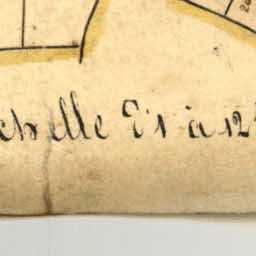 chelle d'1 à 12